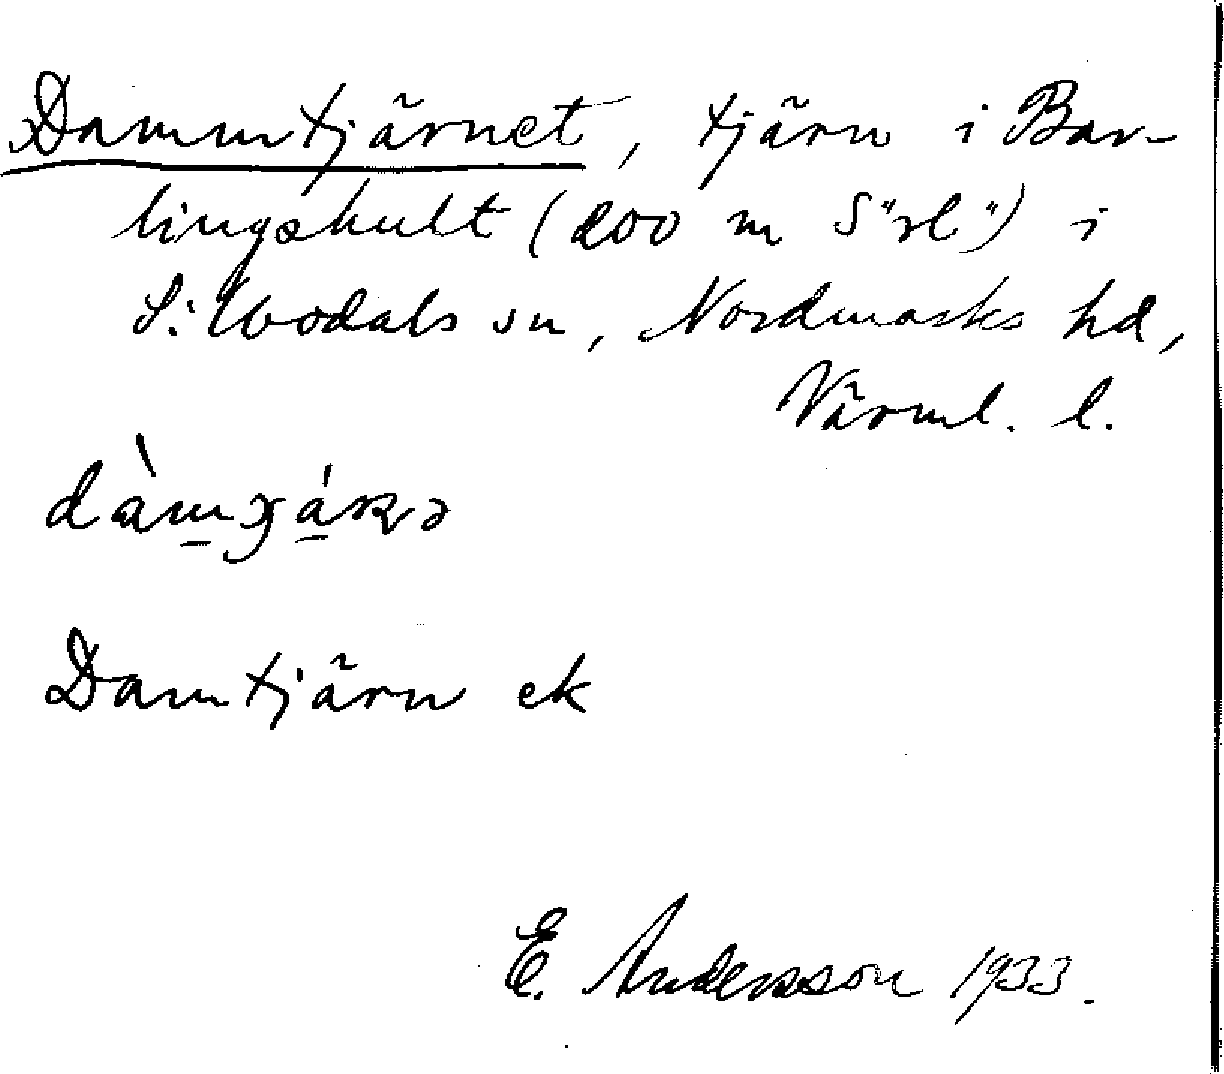 Dammtjärnet, tjärn i Bar-
lingshult (200 m S"rl") i
S: Woodals sn, Nordmarks hd,
Värml. l.
Damtjärn ek
E. Andersson 1933.